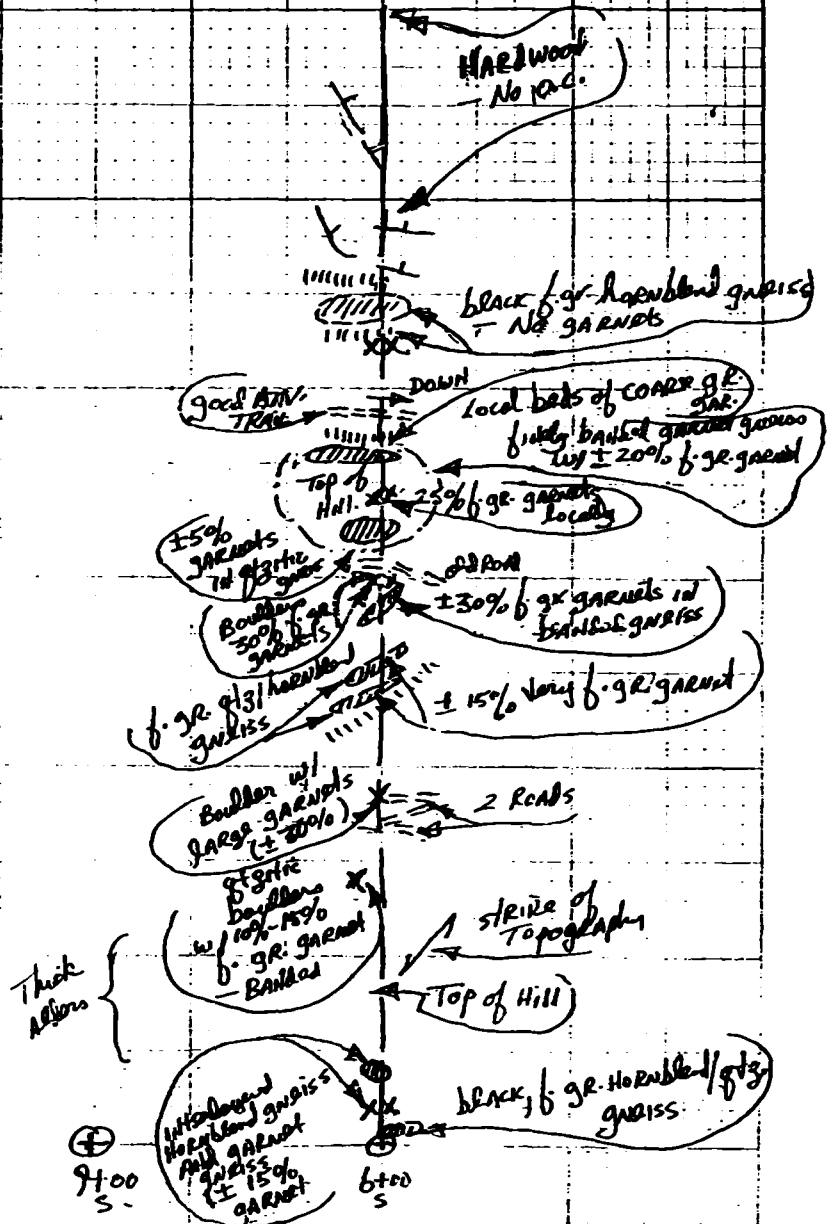 HARDWOOD
- No o.c.
black f. gr. hornblend gneiss
- No GARNETS
DOWN
good ATV
TRAIL
Local beds of COARSE gR.
GAR.
finely banded garnet gneiss
w/ ± 20% f. gR. garnet
Top of
Hill
25% f. gR. garnets
locally
±5%
GARNETS
in qtzitic
gneiss
old ROAD
±30% f. gR GARNETS in
BANDED gneiss
Boulders
30% f. gr.
GARNETS
f. gR. qtz/hornblend
gneiss
± 15% very f. gR. gARNET
Boulder w/
LARGE gARNETS
2 ROADS
qtzitic
boulders
w/ 10%-15%
f. gR. gARNET
- BANDED
STRIKE of
Topography
Thick
Alders
Top of Hill
interlayered
Hornblend gneiss
And garnet
gneiss
(± 15%
GARNET
black, f. gR. Hornblend/qtz.
gneiss
9+00
S.
6+00
S